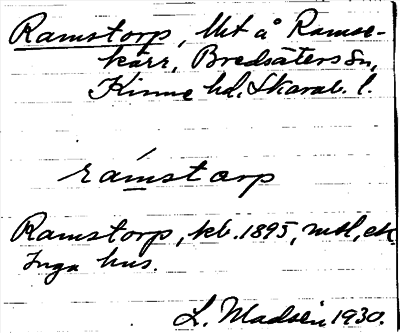 Ramstorp, lht å Ramse-
kärr, Bredsäters sn,
Kinne hd, Skarab. l.
ramstɷrp
Ramstorp, kb. 1895, mtl, ek
Inga hus.
L. Madsén 1930.